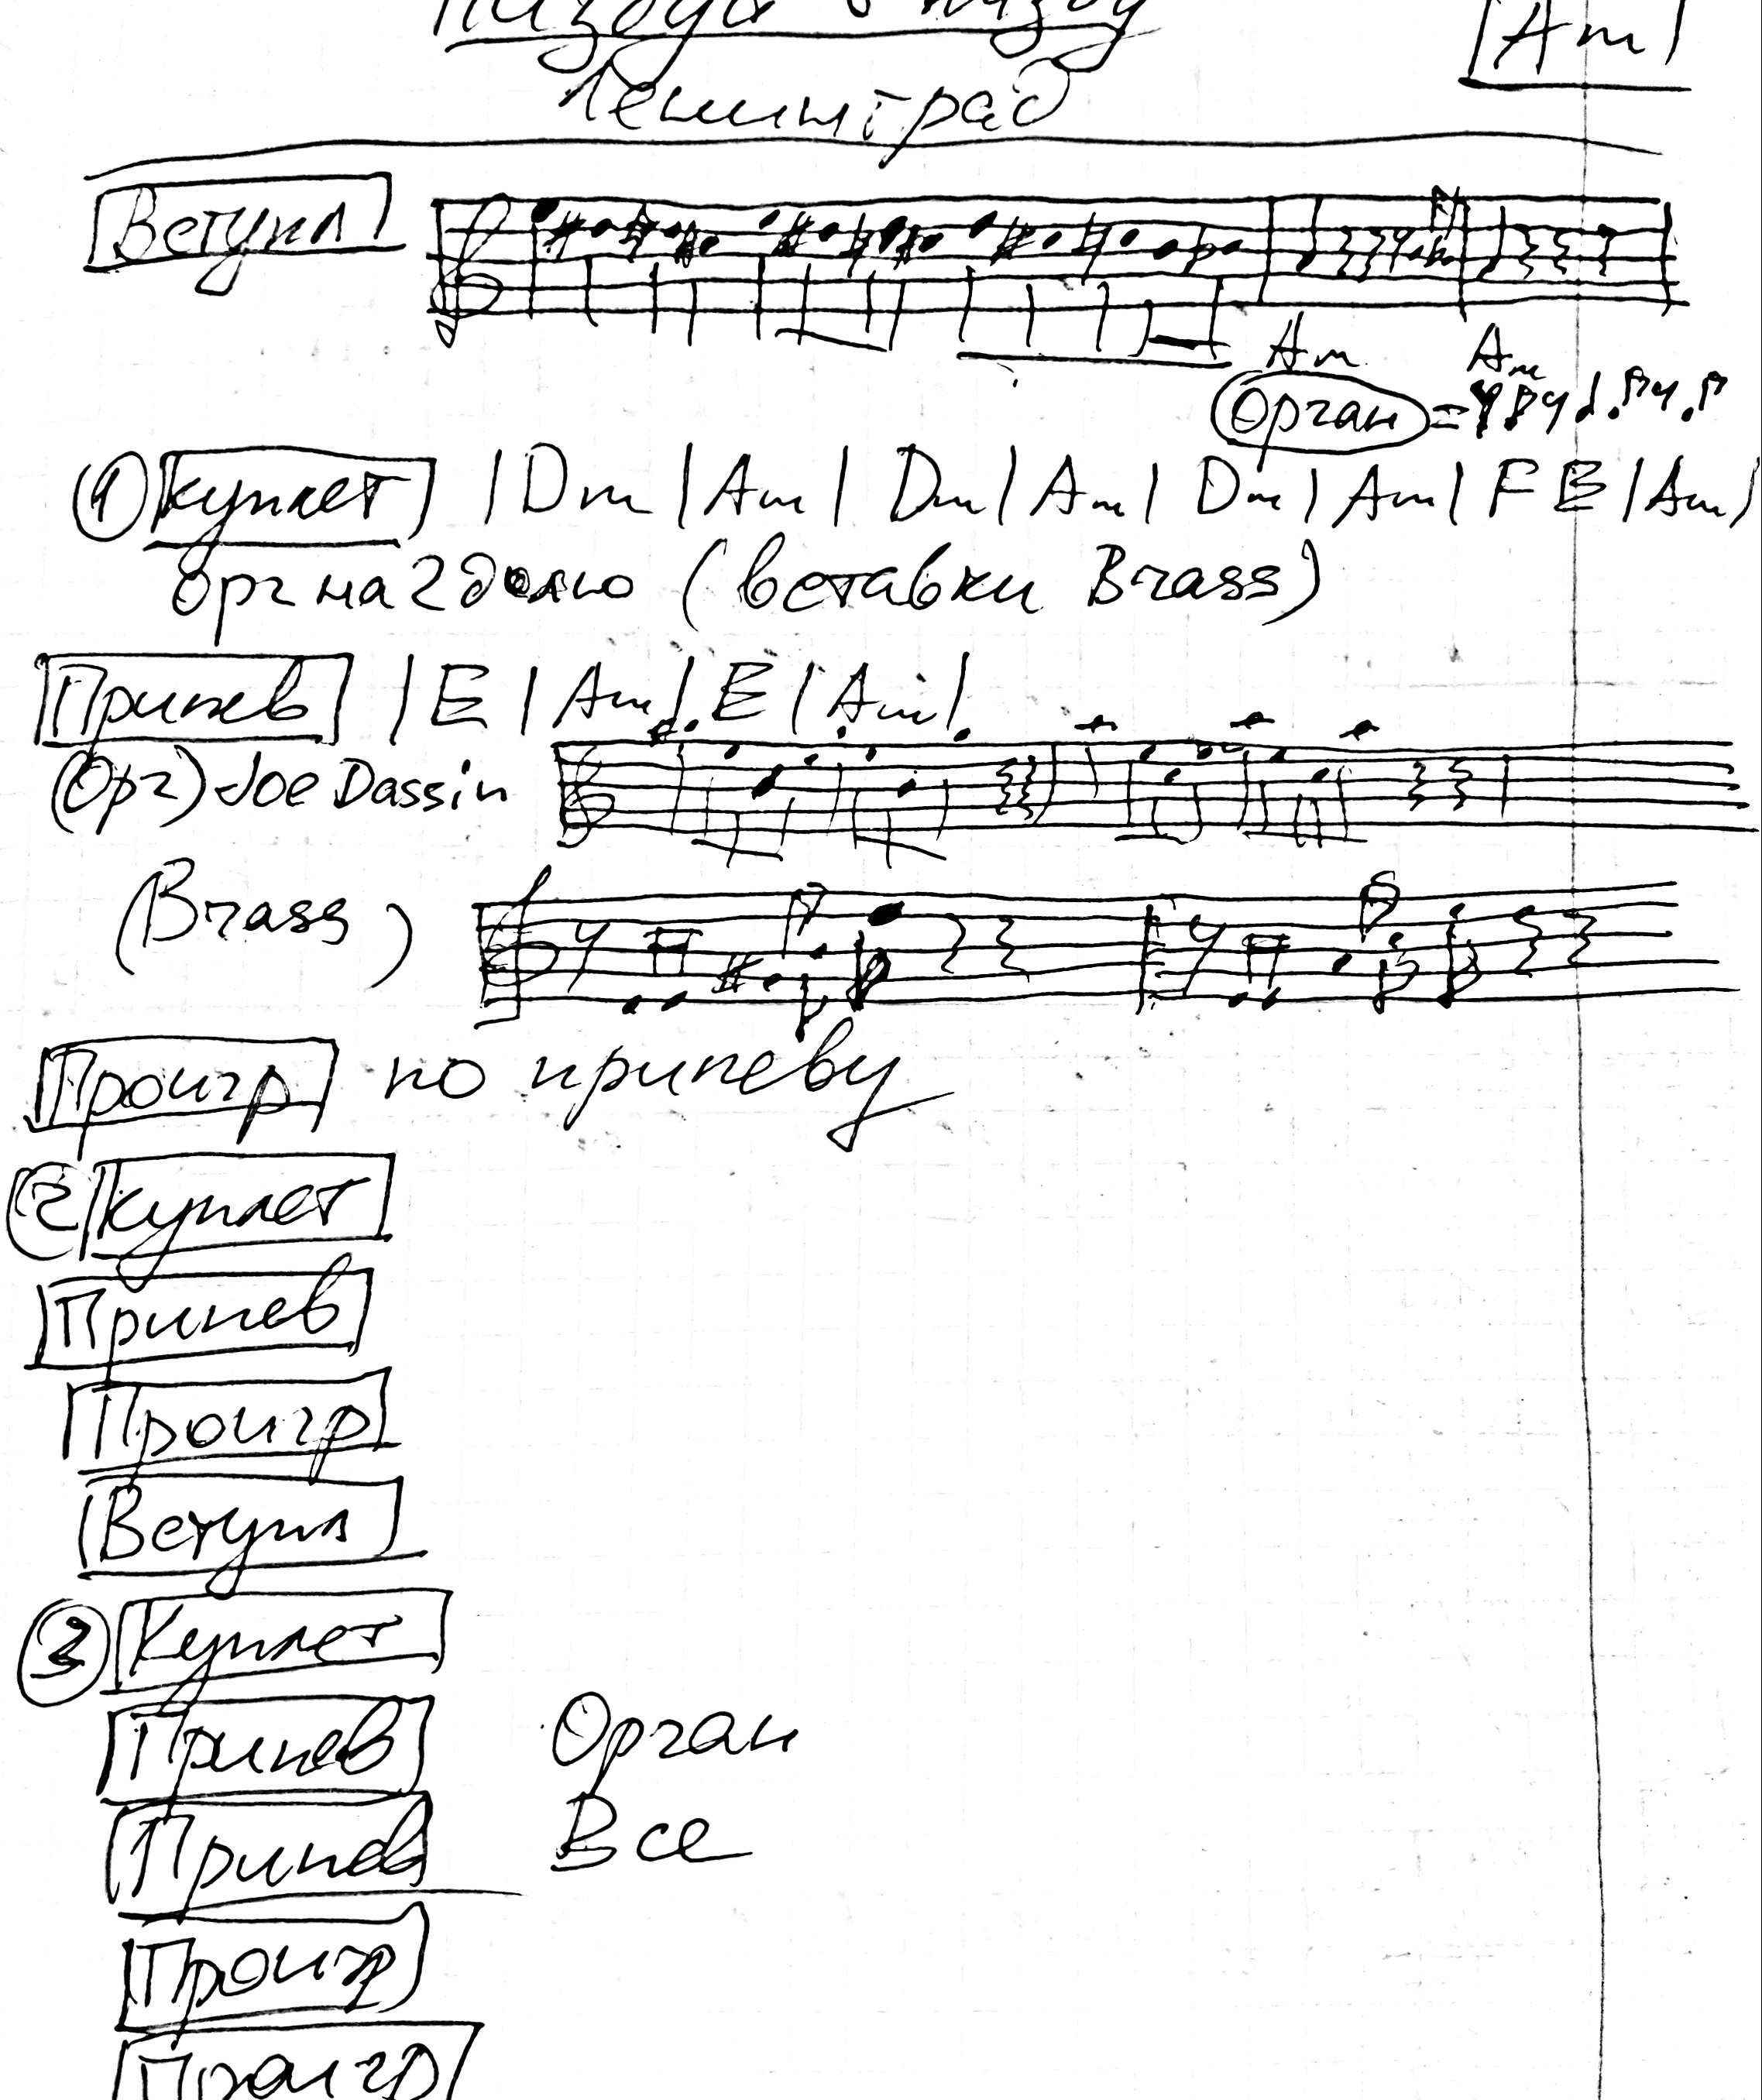 Am
Ленинград
Вступл
Am Am
Орган =
1 Куплет | Dm | Am | Dm | Am | Dm | Am | F E | Am |
орг на 2 долю (вставки Brass)
Припев | E | Am | E | Am |
(Орг) Joe Dassin
(Brass)
Проигр по припеву
2 Куплет
Припев
Проигр
Вступл
3 Куплет
Припев Орган
Припев Все
Проигр
Проигр